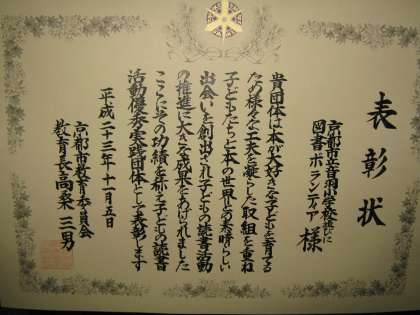 表彰状
京都市立音羽小学校並びに
図書ボランティア 様
貴団体は本が大好きな子どもを育てる
ため様々な工夫を凝らした取組を重ね
子どもたちと本の世界との素晴らしい
出会いを創出され子どもの読書活動
の推進に大きな成果をあげられました
ここにその功績を称え子どもの読書
活動優秀実践団体として表彰します
平成二十三年十一月五日
京都市教育委員会
教育長 高桒三男